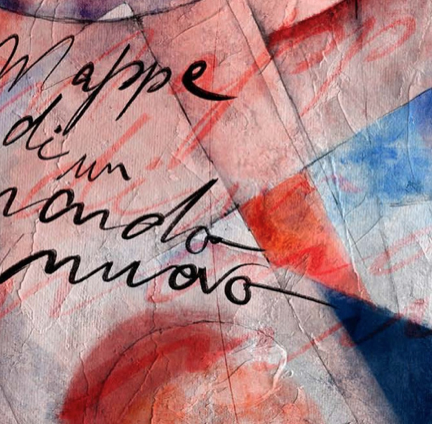 Mappe
di un
mondo
nuovo